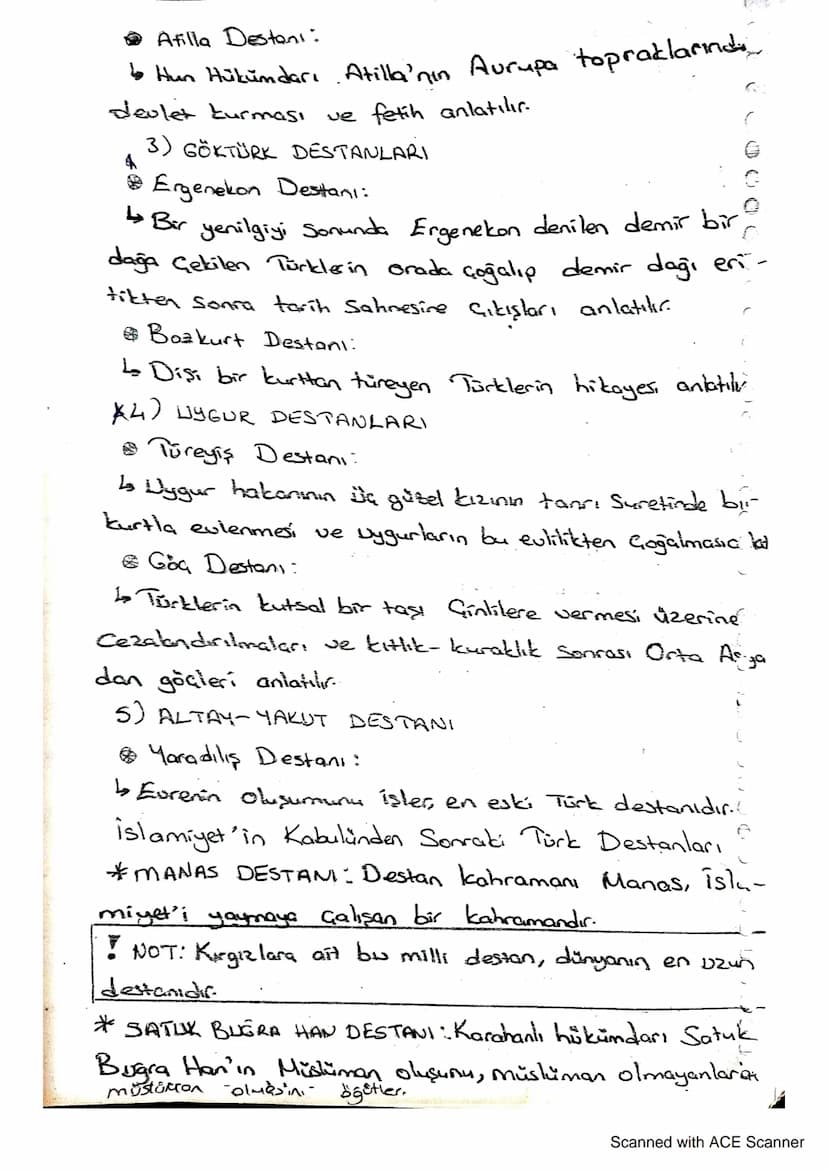 Atilla Destanı:
↳ Hun Hükümdarı Atilla'nın Avrupa topraklarında
devlet kurması ve fetih anlatılır.
3) GÖKTÜRK DESTANLARI
Ergenekon Destanı:
↳ Bir yenilgiyi sonunda Ergenekon denilen demir bir
dağa çekilen Türklerin orada çoğalıp demir dağı eri-
tikten sonra tarih sahnesine çıkışları anlatılır.
Bozkurt Destanı:
↳ Dişi bir kurttan türeyen Türklerin hikayesi anlatılır
*4) UYGUR DESTANLARI
Türeyiş Destanı:
↳ Uygur hakanının üç güzel kızının tanrı suretinde bir
kurtla evlenmesi ve uygurların bu evlilikten çoğalması
Göç Destanı:
↳ Türklerin kutsal bir taşı Çinlilere vermesi üzerine
cezalandırılmaları ve kıtlık-kuraklık sonrası Orta Asya
dan göçleri anlatılır.
5) ALTAY-YAKUT DESTANI
Yaradılış Destanı:
↳ Evrenin oluşumunu işler, en eski Türk destanıdır.
İslamiyet'in Kabulünden Sonraki Türk Destanları
*MANAS DESTANI: Destan kahramanı Manas, İsla-
miyet'i yaymaya çalışan bir kahramandır.
! NOT: Kırgızlara ait bu milli destan, dünyanın en uzun
destanıdır.
* SATUK BUĞRA HAN DESTANI: Karahanlı hükümdarı Satuk
Buğra Han'ın Müslüman oluşunu, müslüman olmayanların
olmasını öğütler.
Scanned with ACE Scanner